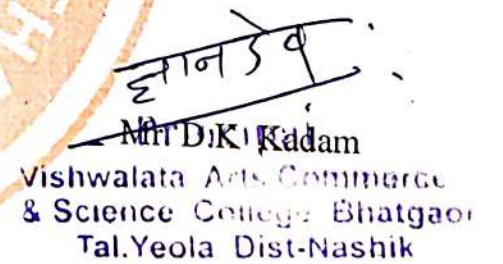 ज्ञानदेव
Mr. D.K. Kadam
Vishwalata Arts Commerce
& Science College Bhatgaon
Tal.Yeola Dist-Nashik